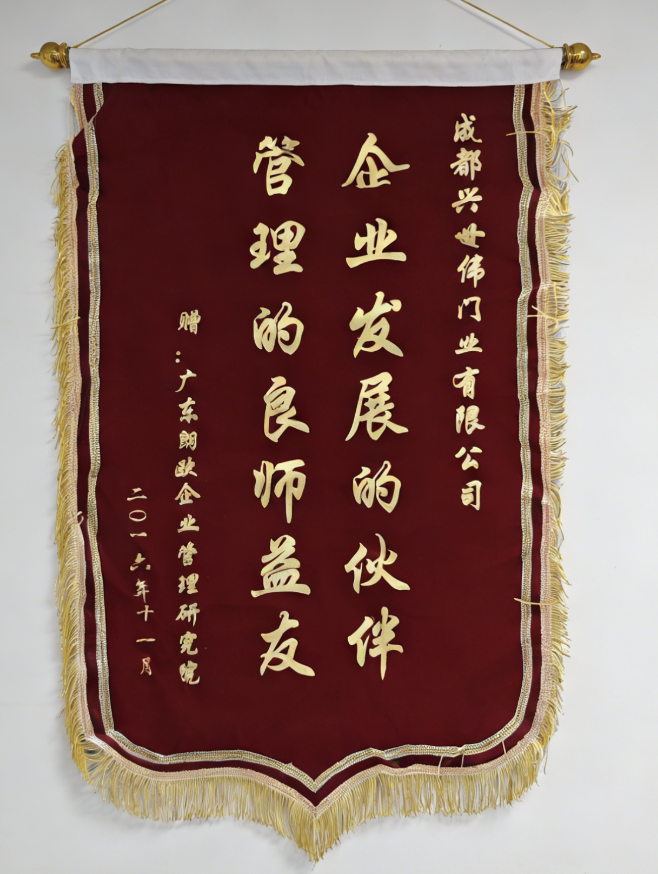 成都兴世伟门业有限公司
企业发展的伙伴
管理的良师益友
赠：广东朗欧企业管理研究院
二〇一六年十一月